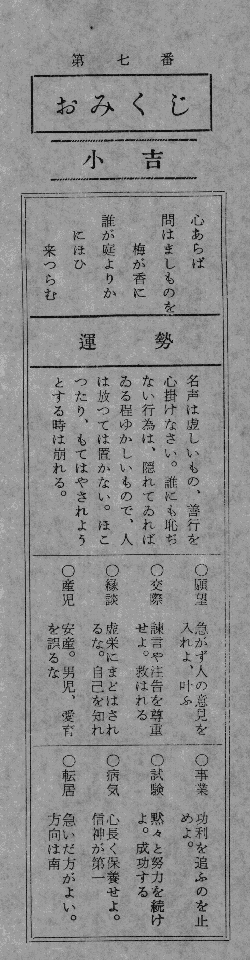 第七番
おみくじ
小吉
心あらば
問はましものを
梅が香に
誰が庭よりか
にほひ
来つらむ
運勢
名声は虚しいもの、善行を
心掛けなさい。誰にも恥ぢ
ない行為は、隠れてゐれば
ゐる程ゆかしいもので、人
は放つては置かない。ほこ
つたり、もてはやされよう
とする時は崩れる。
○願望
急がず人の意見を
入れよ、叶ふ
○交際
諫言や注告を尊重
せよ。救はれる
○縁談
虚栄にまどはされ
るな。自己を知れ
○産児
安産。男児、愛育
を誤るな
○事業
功利を追ふのを止
めよ。
○試験
黙々と努力を続け
よ。成功する
○病気
心長く保養せよ。
信神が第一
○転居
急いだ方がよい。
方向は南